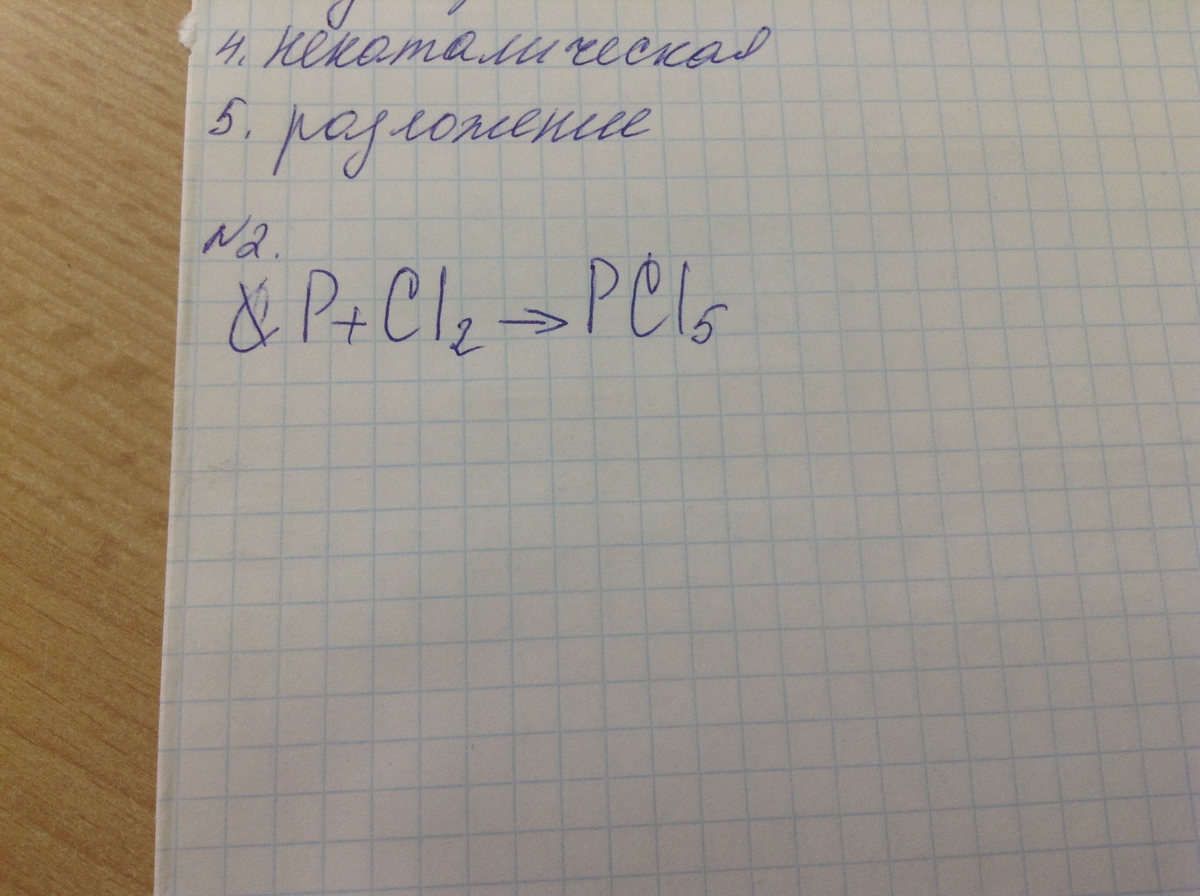 4. некаталическая
5. разложение
№2.
P + Cl₂ → PCl₅